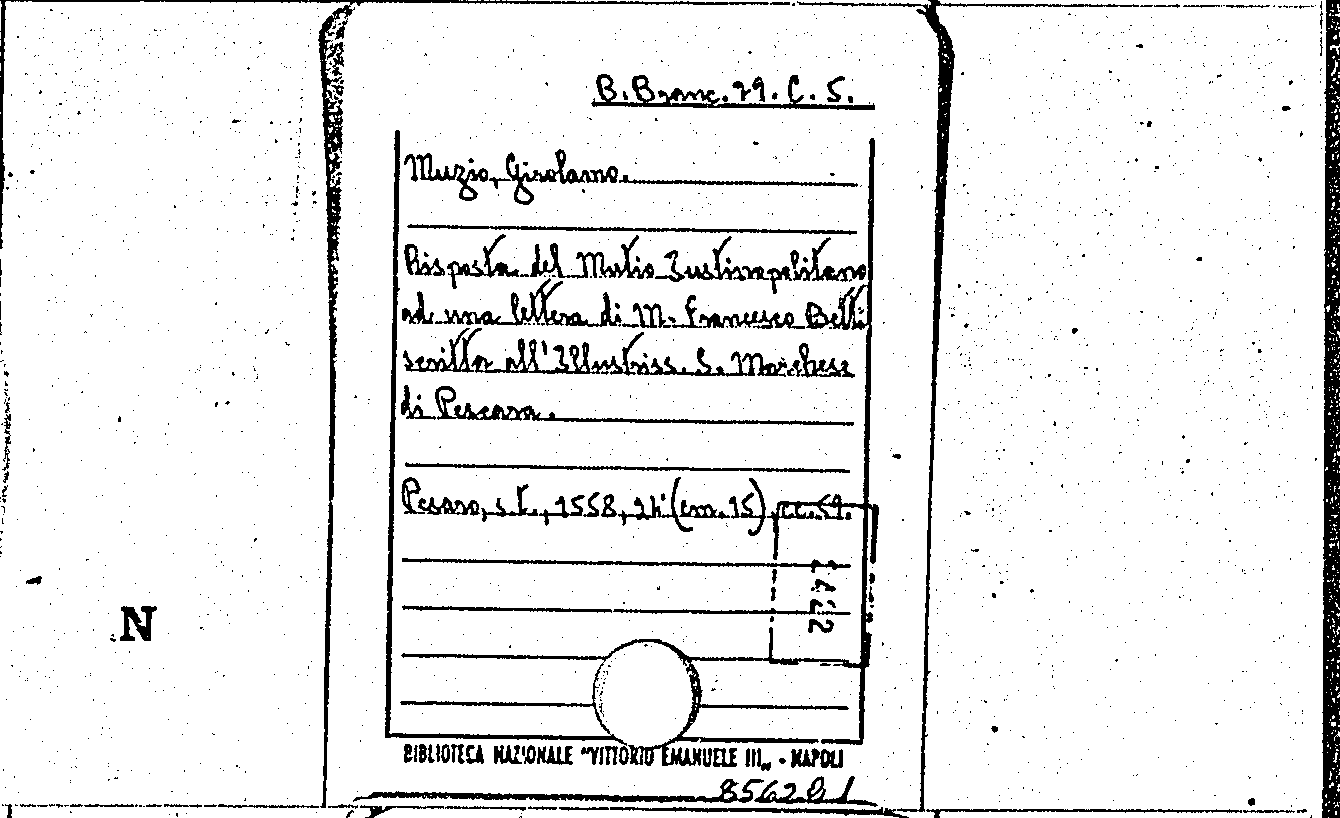 B. Branc. 29. C. 5.
Muzio, Girolamo.
Risposta del Mutio Iustinopolitano
ad una lettera di M. Francesco Betti
scritta all'Illustriss. S. Marchese
di Pescara.
Pesaro, s.t., 1558, 24° (cm. 15), cc. 59.
N
BIBLIOTECA NAZIONALE "VITTORIO EMANUELE III„ - NAPOLI